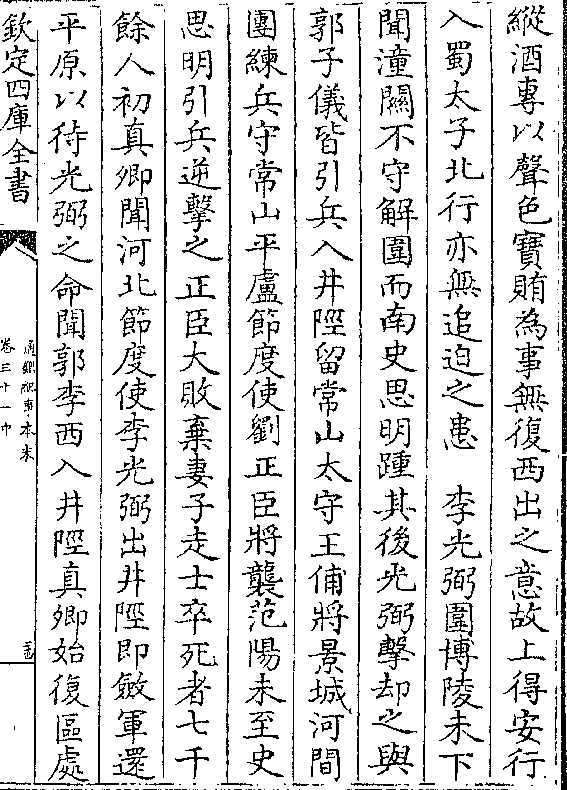 縱酒專以聲色寶賄為事無復西出之意故上得安行
入蜀太子北行亦無追迫之患　李光弼圍博陵未下
聞潼關不守解圍而南史思明踵其後光弼擊却之與
郭子儀皆引兵入井陘留常山太守王俌將景城河間
團練兵守常山平盧節度使劉正臣將襲范陽未至史
思明引兵逆擊之正臣大敗棄妻子走士卒死者七千
餘人初真卿聞河北節度使李光弼出井陘即斂軍還
平原以待光弼之命聞郭李西入井陘真卿始復區處
欽定四庫全書
通鑑紀事本末
卷三十一中